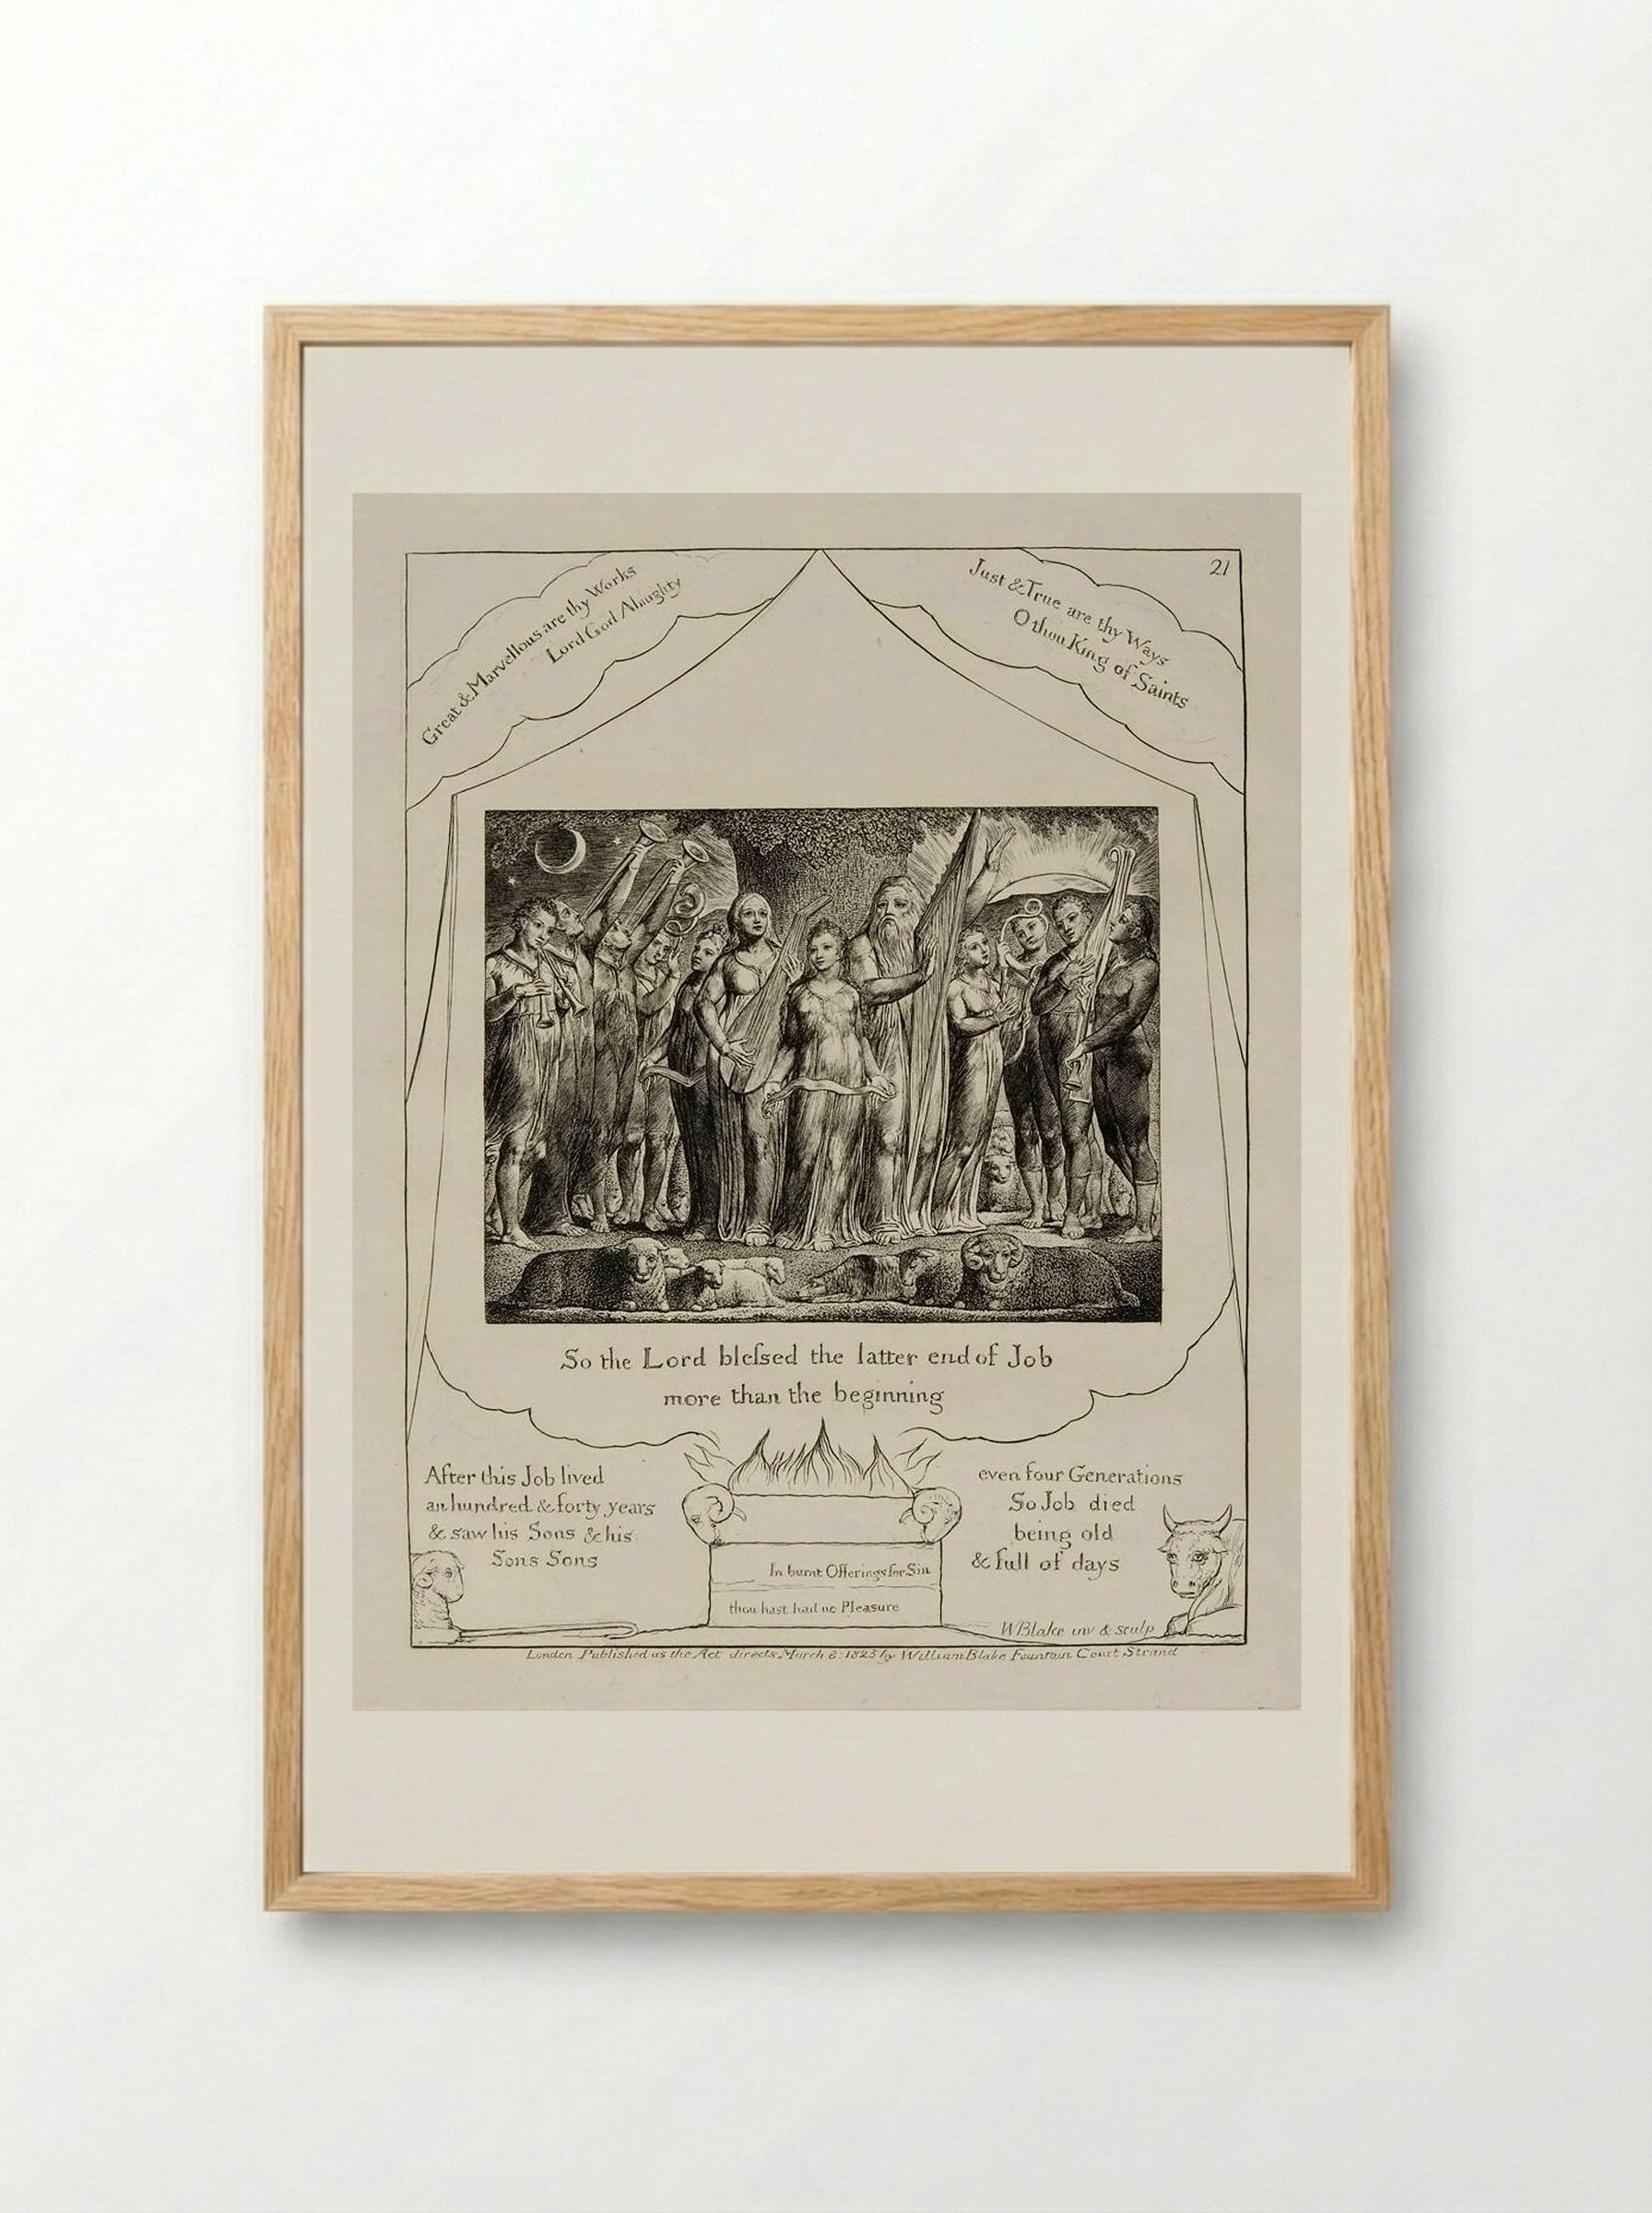 Great & Marvellous are thy Works
Lord God Almighty
Just & True are thy Ways
O thou King of Saints
21
So the Lord bleſsed the latter end of Job
more than the beginning
After this Job lived
an hundred & forty years
& saw his Sons & his
Sons Sons
even four Generations
So Job died
being old
& full of days
In burnt Offerings for Sin
thou hast had no Pleasure
WBlake inv & sculp
London Published as the Act directs March 8: 1825 by William Blake Fountain Court Strand